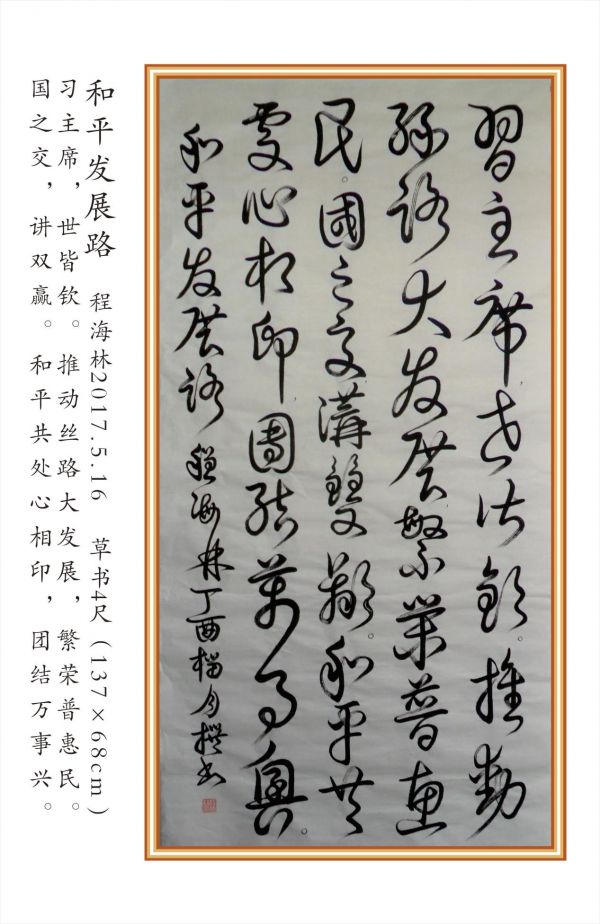 習主席世皆欽。推動
絲路大发展繁榮普惠
民。國之交講雙贏。和平共
處心相印團結萬事興。
和平发展路 程海林丁酉榴月撰书
和平发展路 程海林2017.5.16 草书4尺（137×68cm）
习主席，世皆钦。推动丝路大发展，繁荣普惠民。
国之交，讲双赢。和平共处心相印，团结万事兴。